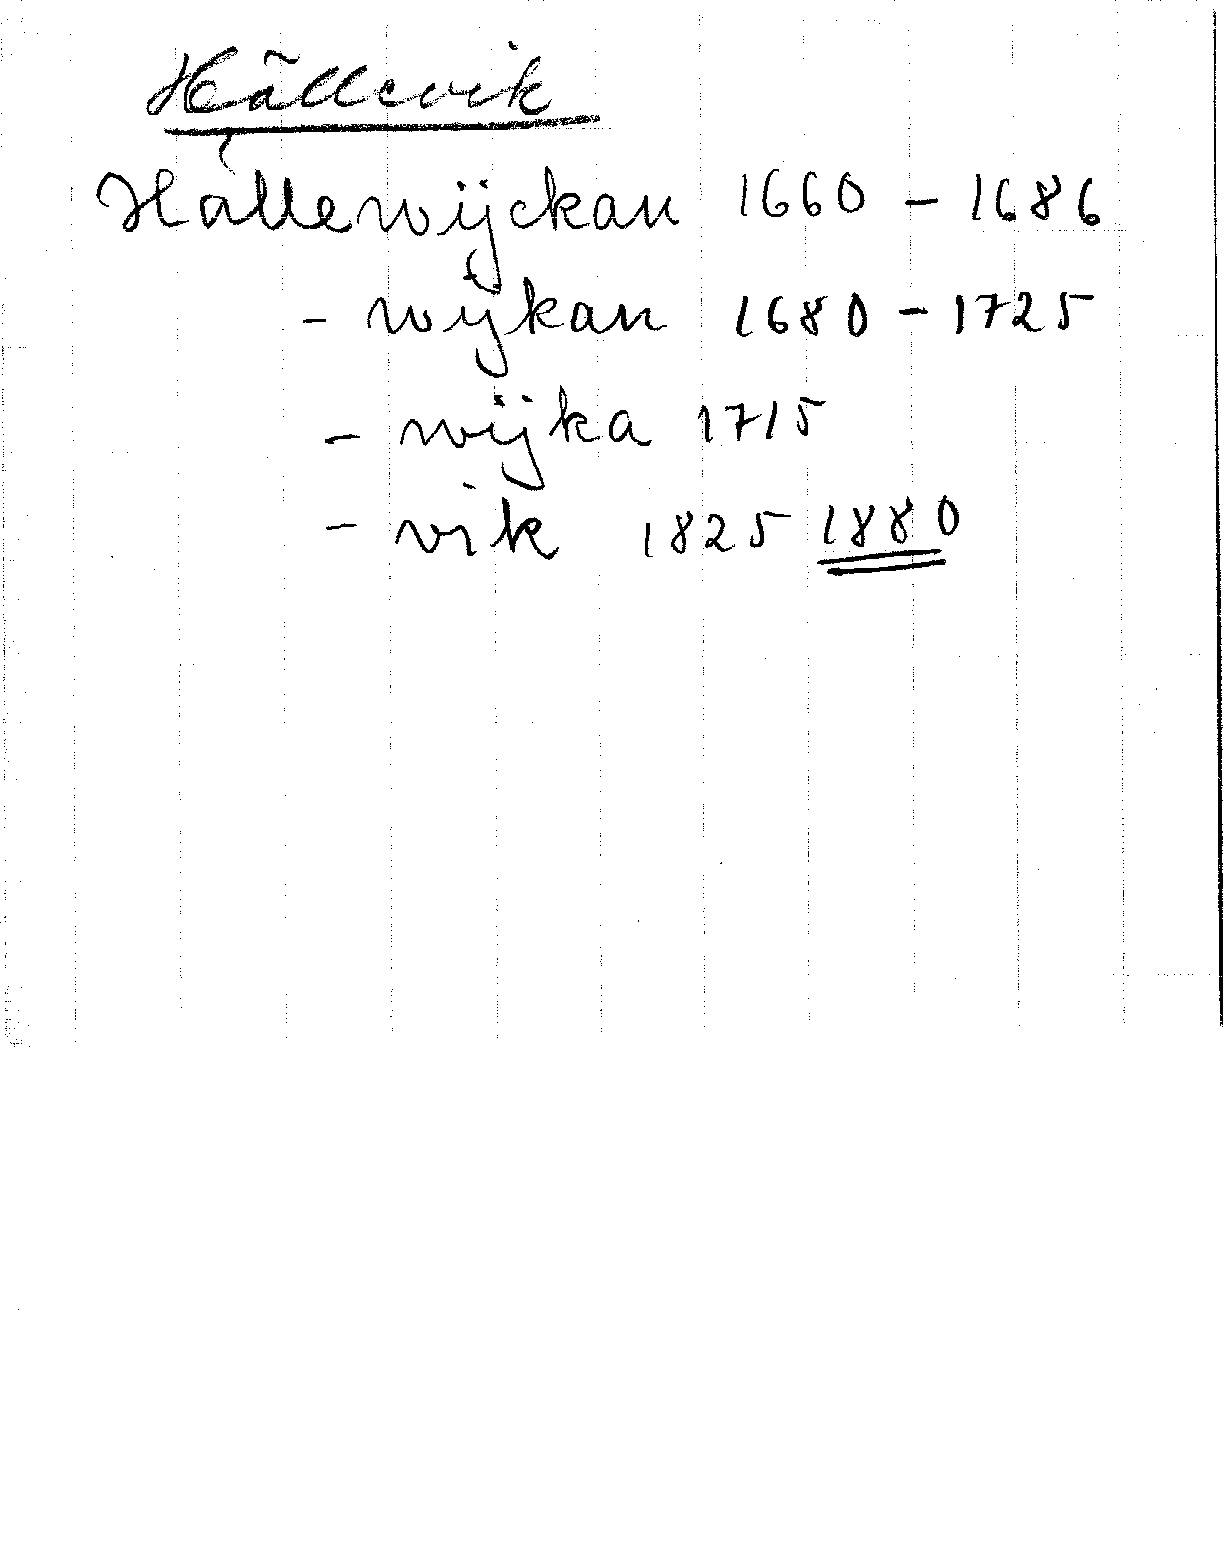 Hällevik
Hållewijckan 1660 - 1686
- wijkan 1680 - 1725
- wijka 1715
- vik 1825 1880